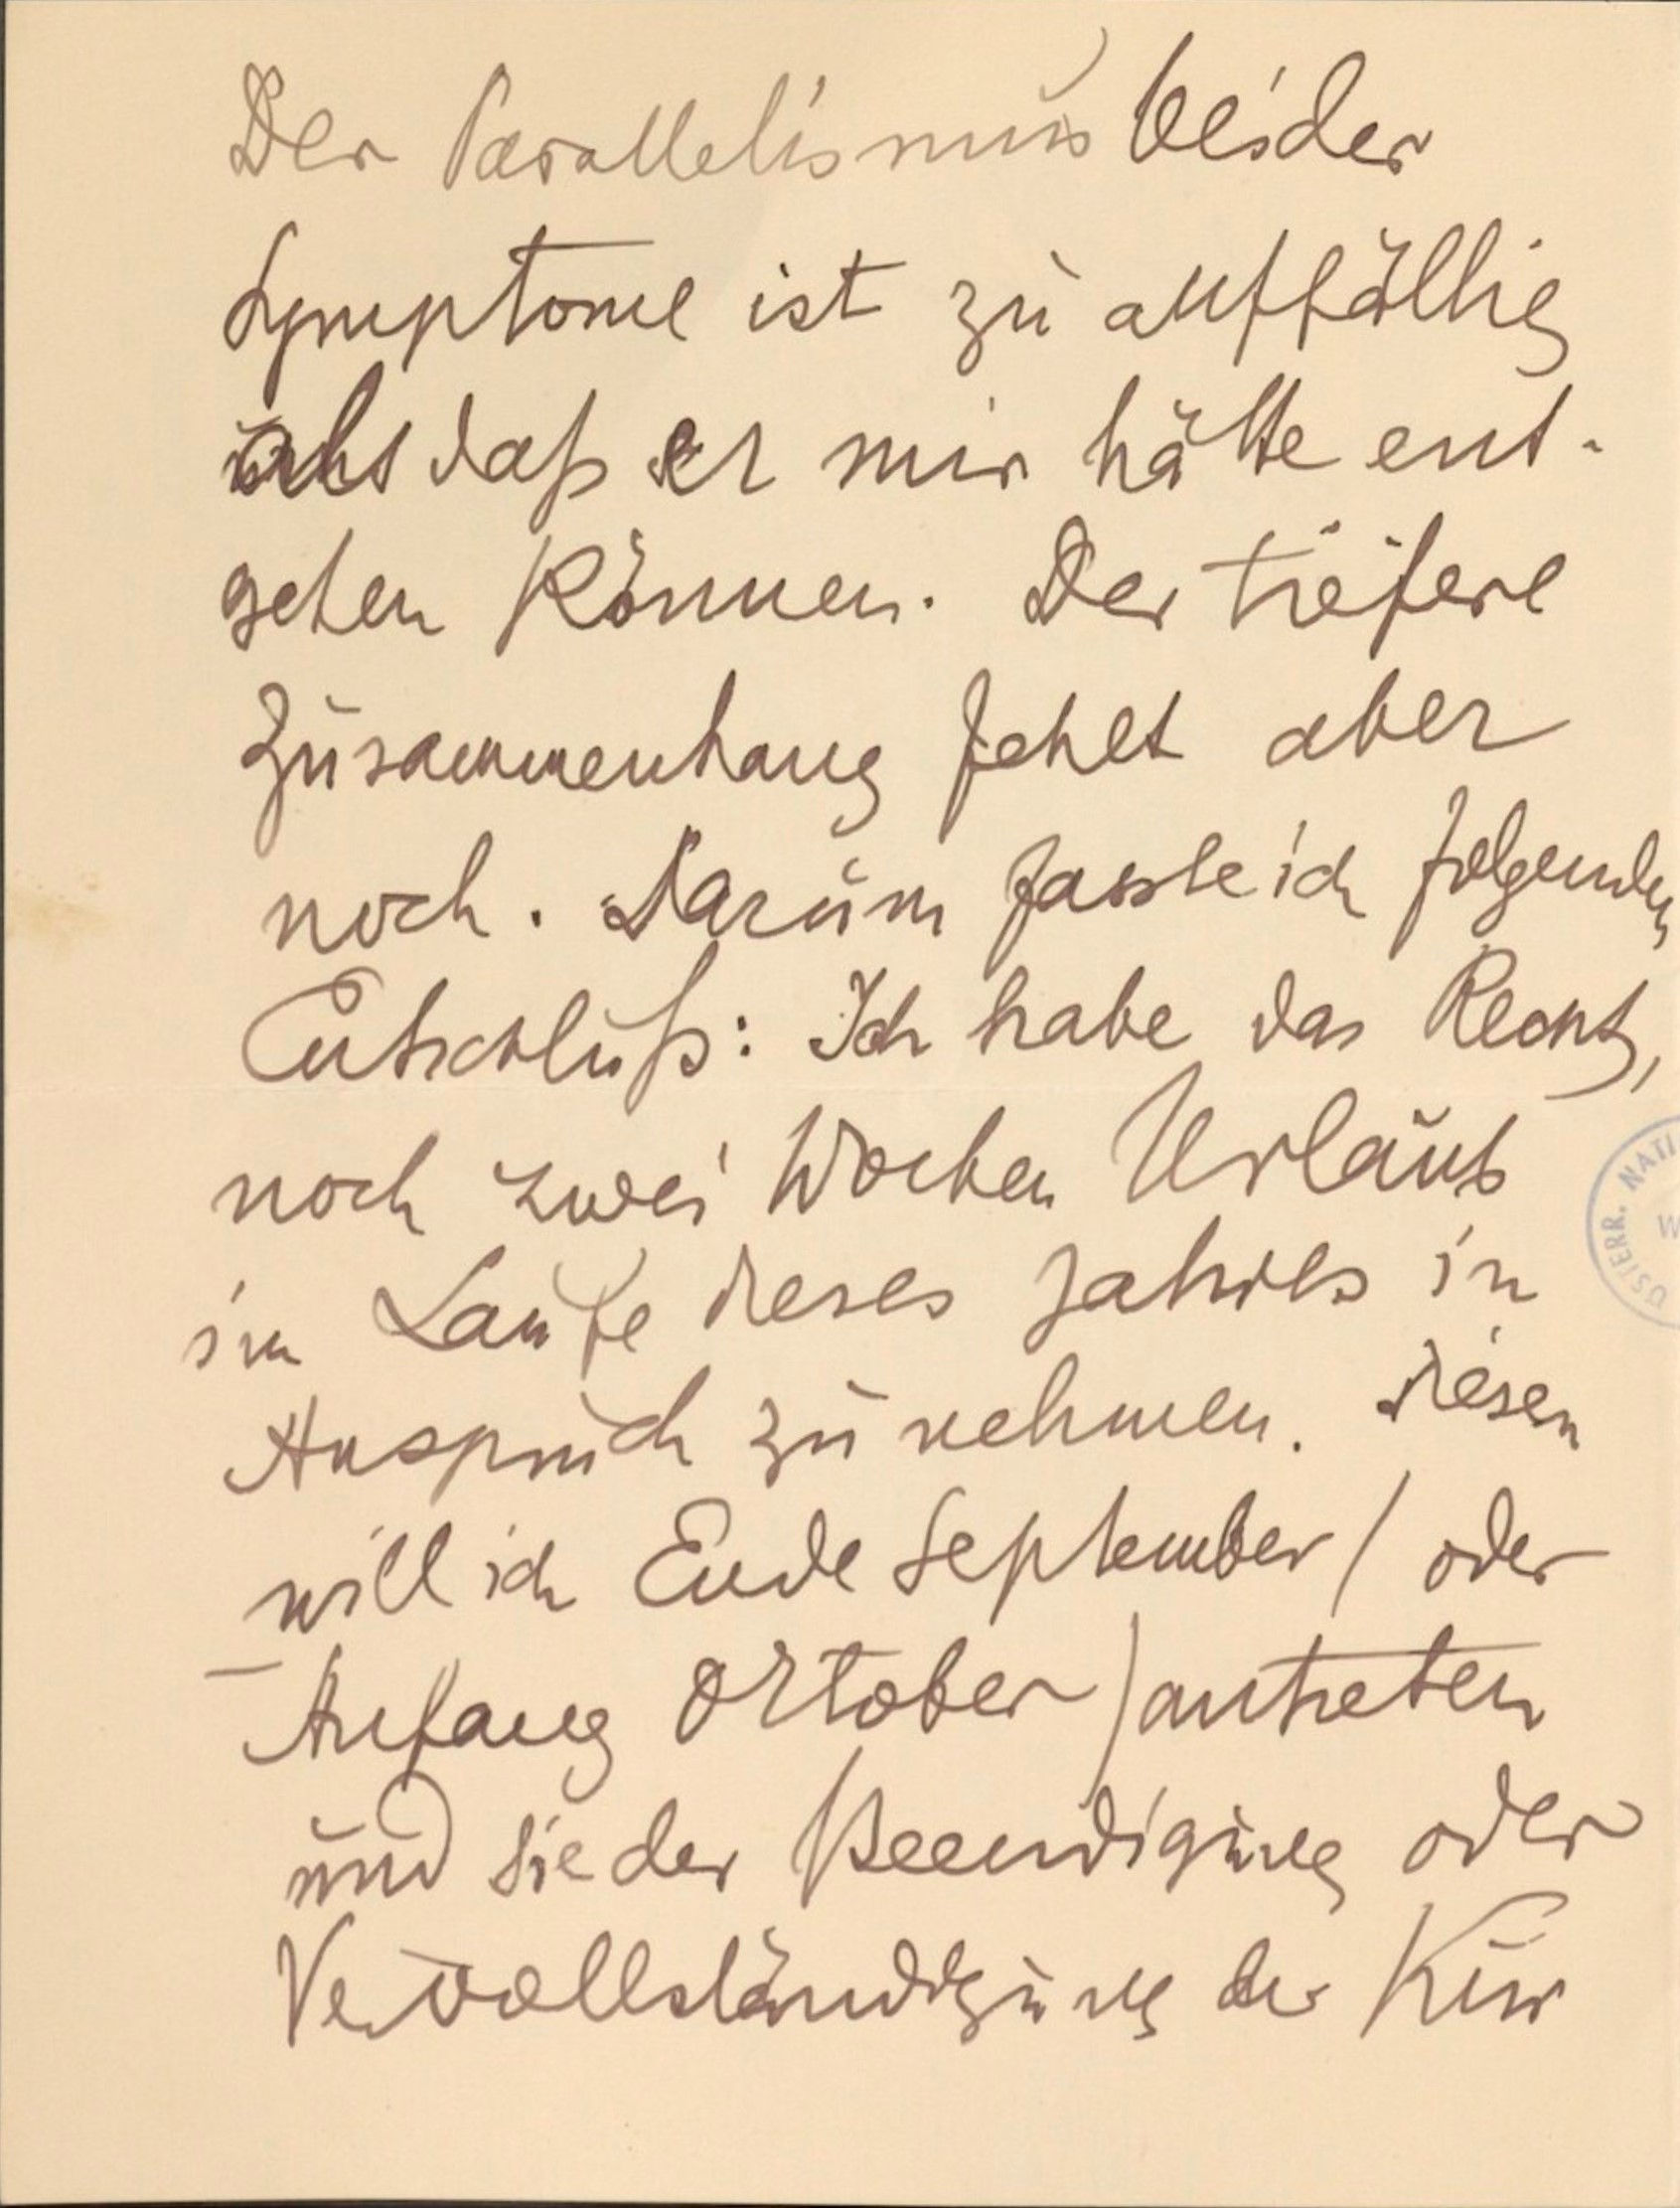 Der Parallelismus beider
Symptome ist zu auffällig
als daß er mir hätte ent-
gehen können. Der tiefere
Zusammenhang fehlt aber
noch. Darum fasste ich folgenden
Entschluß: Ich habe das Recht,
noch zwei Wochen Urlaub
im Laufe dieses Jahres in
Anspruch zu nehmen. Diesen
will ich Ende September / oder
Anfang Oktober / antreten
und sie der Beendigung oder
Vervollständigung der Kur
ÖSTERR. NATI
W